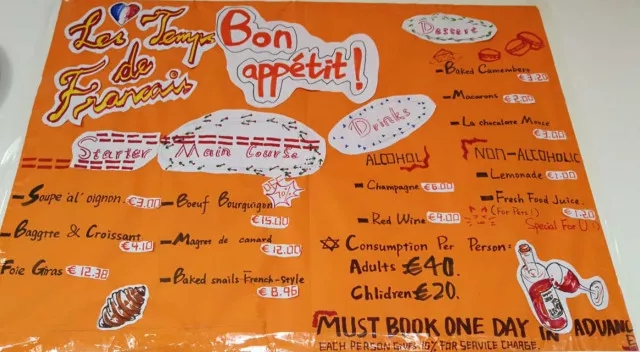 Les Temps
de
Francais
Bon
appétit!
Starter
Soupe à l'oignon. €3.00
Bagtte & Croissant
€4.10
Foie Gras €12.38
Main Course
Boeuf Bourguigon
€15.00
Magret de canard
€12.00
Baked snails French-Style
€8.96
Drinks
ALCOHOL
Champagne €6.00
Red Wine €9.00
NON-ALCOHOLIC
Lemonade €1.00
Fresh Food Juice.
€1.20
(For Pets!)
Special For U:)
Dessert
Baked Camembert
€3.20
Macarons €2.00
La chocolate Mouse
€3.00
Consumption Per Person:
Adults €40.
Chlidren €20.
MUST BOOK ONE DAY IN ADVANC
EACH PERSON GIVES 10% FOR SERVICE CHARGE.